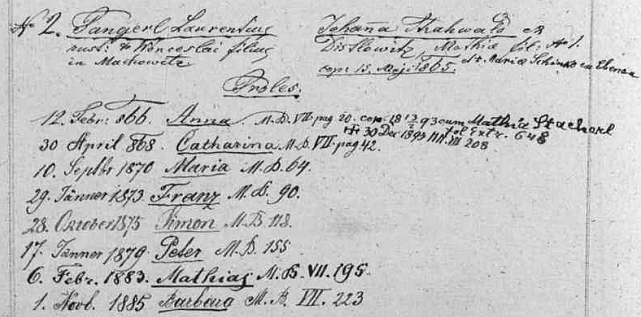 No 2. Fangerl Laurentius
rust: & Wenceslai filius
in Machowitz
Johanna Strahwald ex
Distlowitz, Mathia fil: No 1.
et Maria Schinko ex Ebenau
cop: 15. Maj: 1865.
Proles.
12. Febr: 866. Anna. M.B. VII pag 20. cop. 18 93 cum Mathia Stacherl
30 April 868. Catharina M.B. VII. pag 42. 30 Dez 1893 208 fol Extr. 648
10. Septbr 1870 Maria M.B. 64.
29. Jänner 1873. Franz M.B. 90.
28. Oktober 1875 Simon M.B. 118.
17. Jänner 1879. Peter M.B. 155
6. Febr. 1883. Mathias M.B. VII. 195.
1. Novb. 1885 Barbara M.B. VII. 223